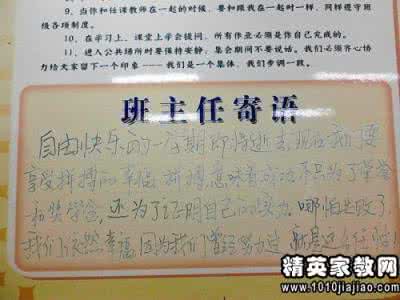 9、当你和任课教师在一起的时候，要和跟我在一起时一样，同样遵守班
级各项制度。
10、在学习上，课堂上学会提问，所有作业必须是你自己完成的。
11、进入公共场所时要保持安静；集会期间不要说话。我们必须齐心协
力给大家留下一个印象——我们是一个集体，我们步调一致。
班主任寄语
自由快乐的一星期即将逝去，现在我们要
享受拼搏的幸福，拼搏意味着成功，不只为了荣誉
和奖学金，还为了证明自己的实力。哪怕失败了，
我们依然幸福，因为我们曾经努力过，
精英家教网
www.1010jiajiao.com